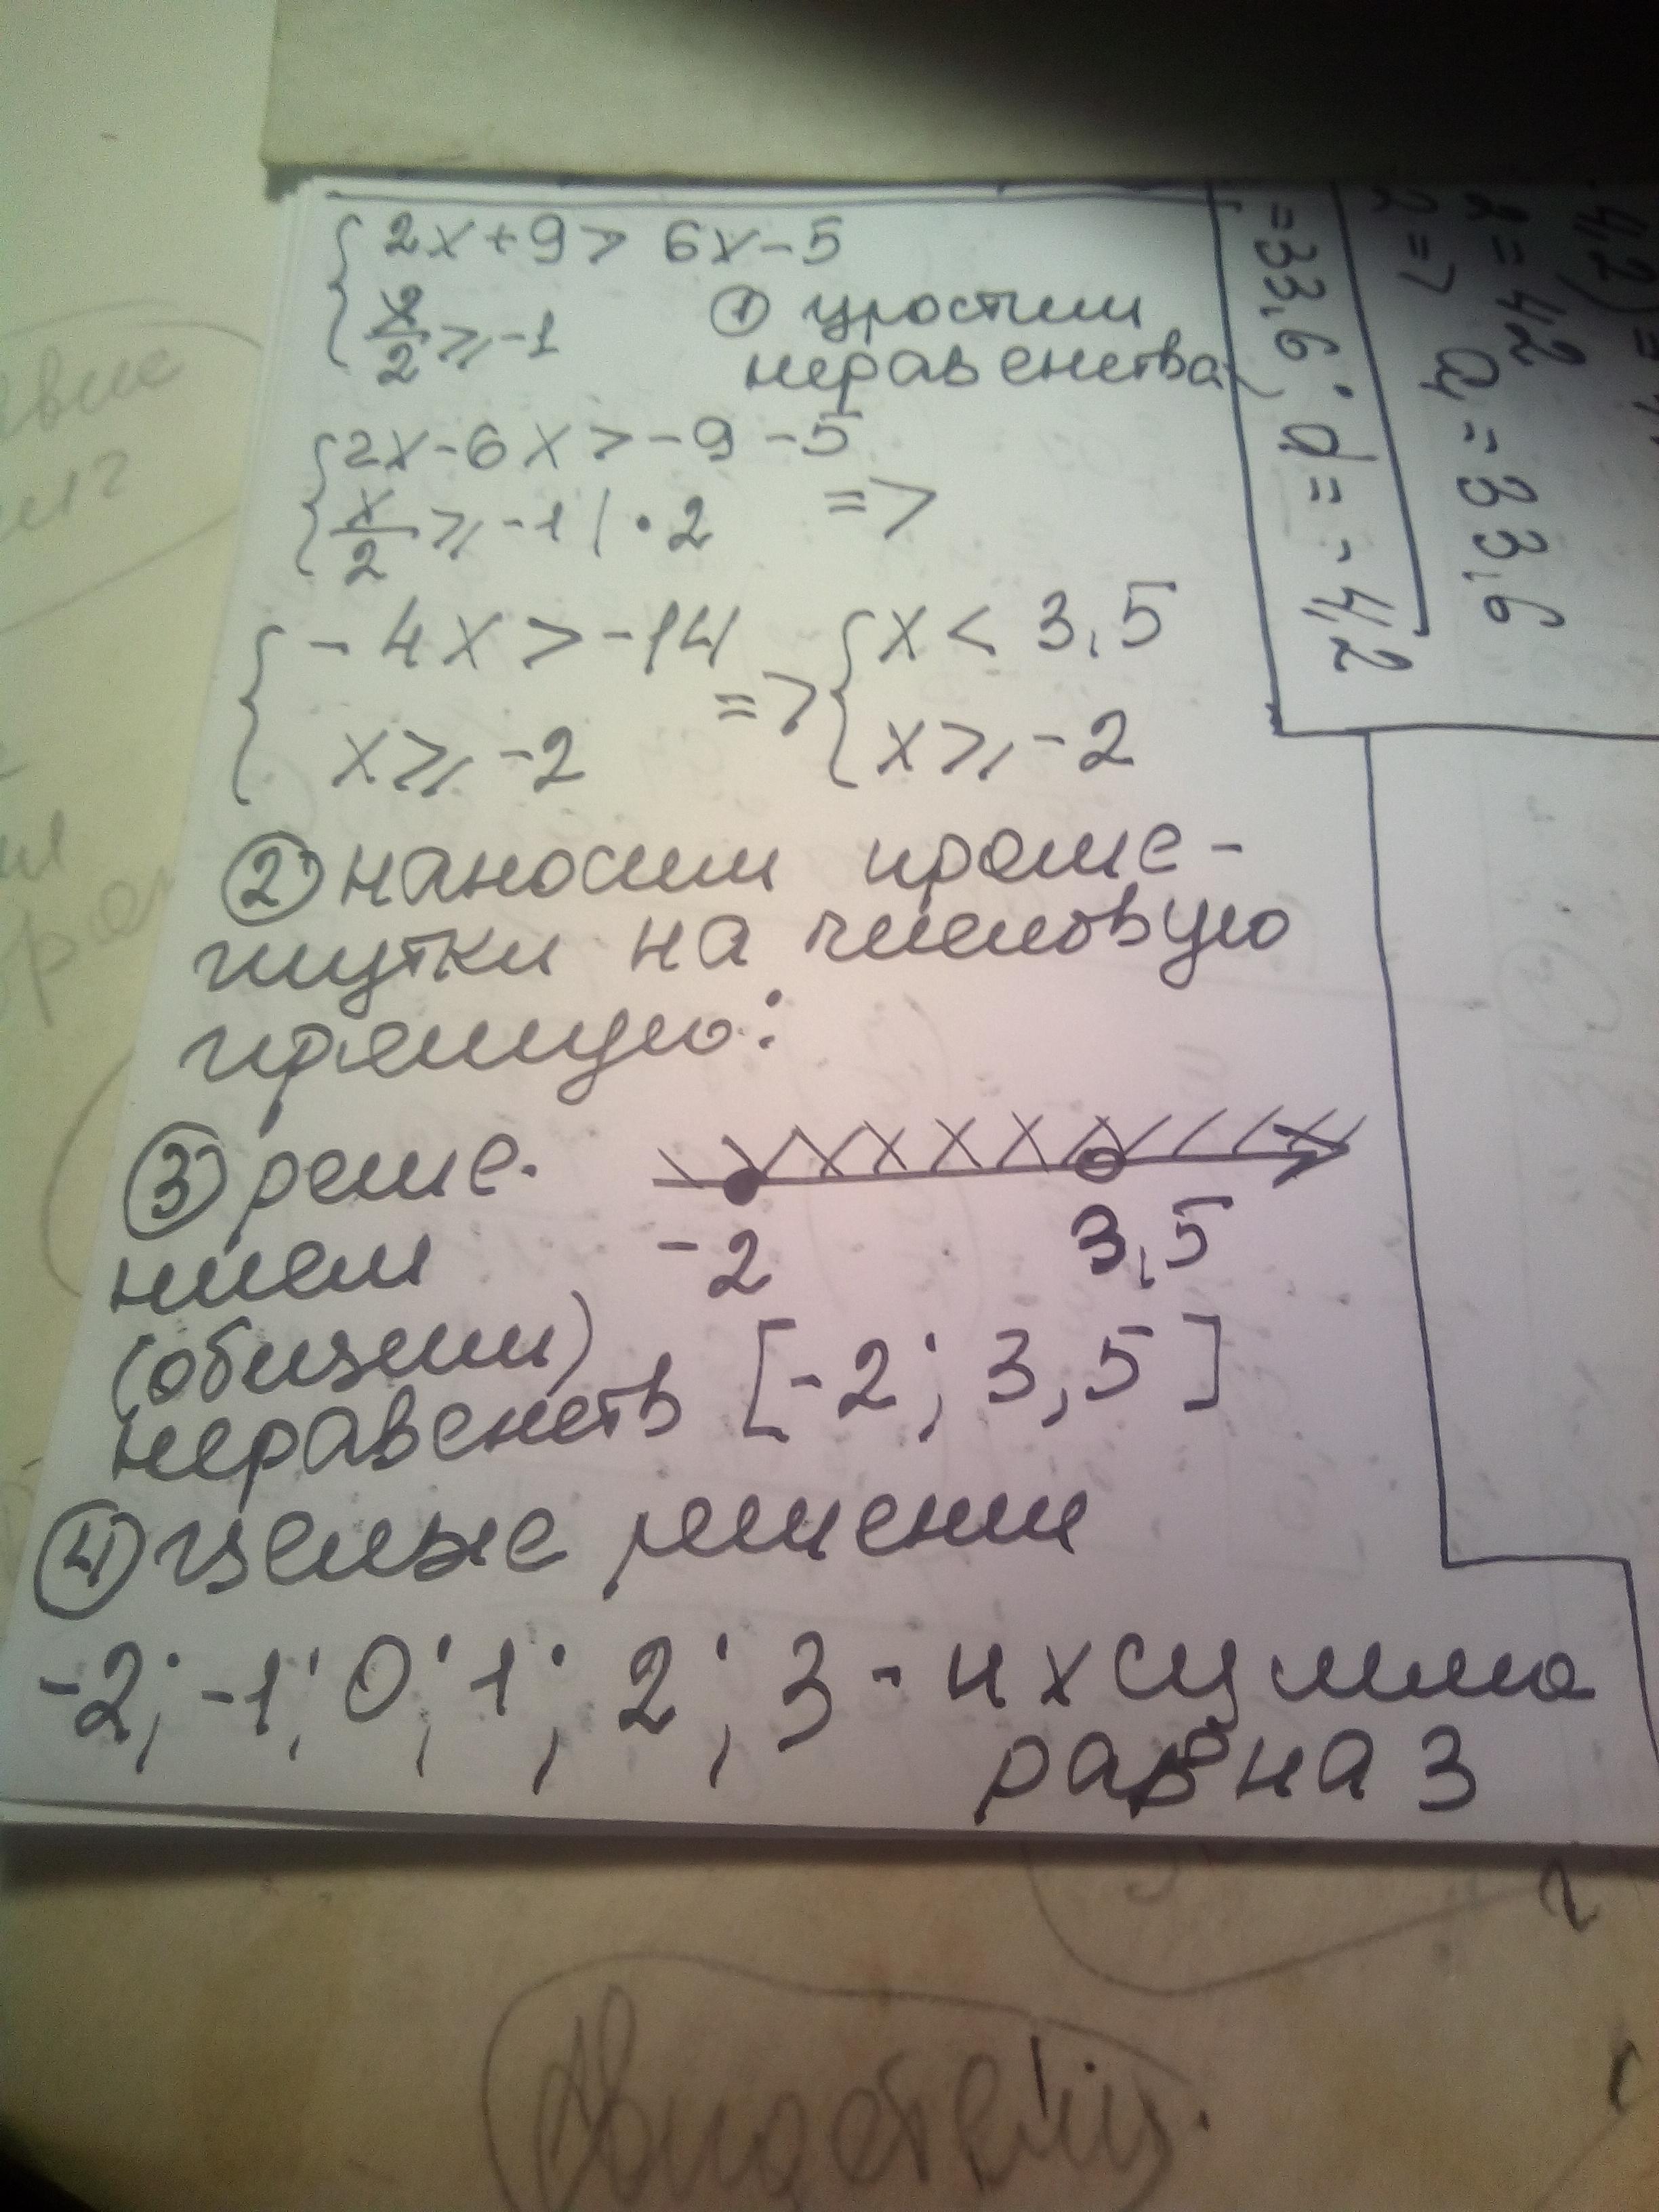 2x+9 > 6x-5
x/2 ⩾ -1 ① упростим
неравенства
2x-6x > -9-5
x/2 ⩾ -1 | •2 =>
-4x > -14 => x < 3,5
x ⩾ -2 x ⩾ -2
② наносим проме-
жутки на числовую
прямую:
③ реше-
нием -2 3,5
(общим)
неравенств [-2; 3,5]
④ целые решении
-2; -1; 0; 1; 2; 3 - их сумма
равна 3
=33,6; d=-4,2
2=>
2=42 a₁=33,6
4,2)=